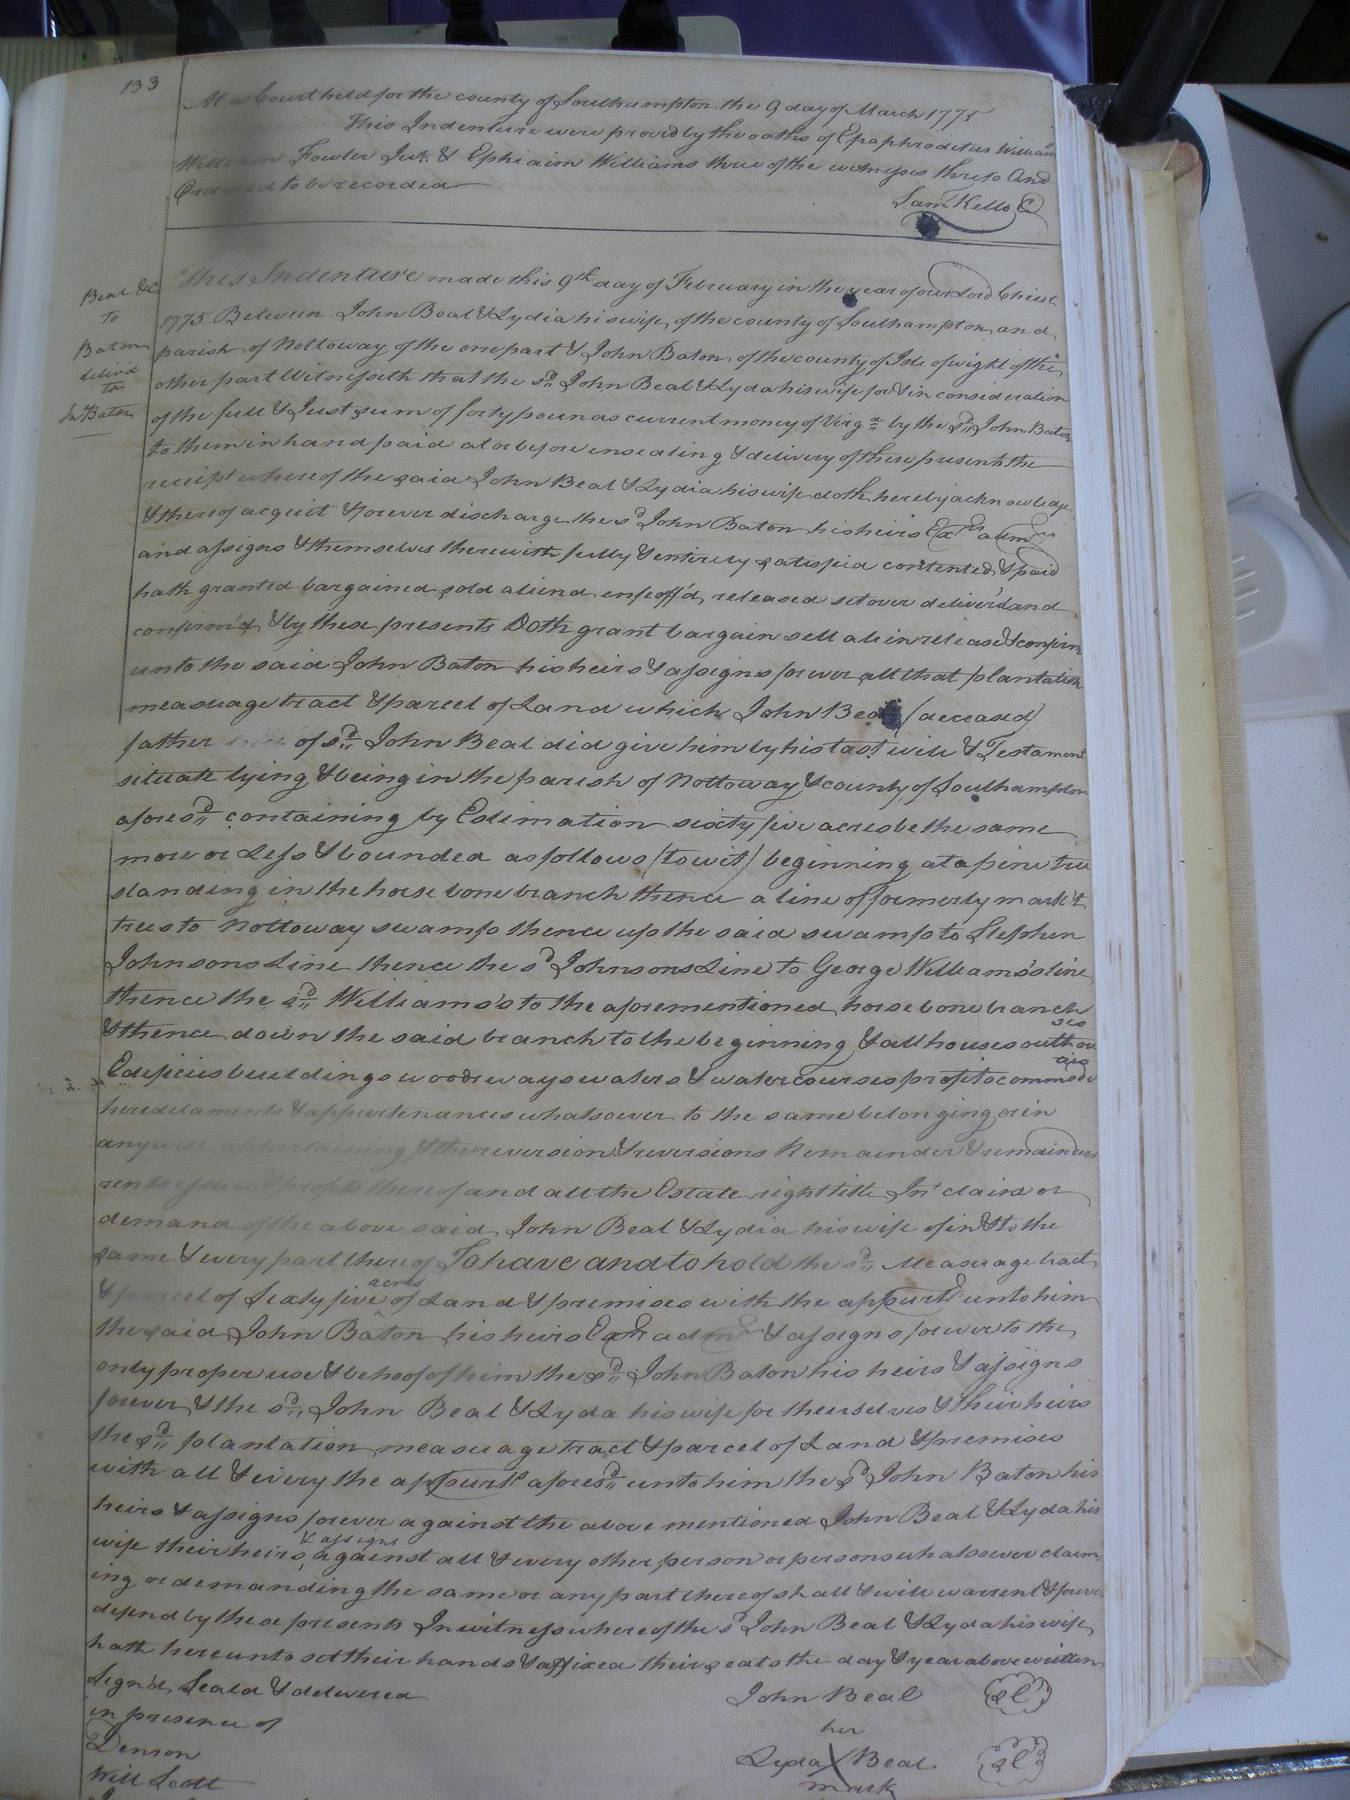 133
At a Court held for the county of Southampton the 9 day of March 1775
This Indenture were proved by the oaths of Epaphroditus William
William Fowler Junr. & Ephraim Williams three of the witnesses thereto And
Ordered to be recorded
Sam. Kello C
Beal &c
to
Baton
delivd
to
Jn Baton
This Indenture made this 9th day of February in the year of our Lord Christ
1775 Between John Beal & Lydia his wife of the county of Southampton and
parish of Nottoway of the one part & John Baton of the county of Isle of wight of the
other part Witnesseth that the sd John Beal & Lyda his wife for & in consideration
of the full & Just sum of forty pounds current money of Virga by the sd John Baton
to them in hand paid at or before ensealing & delivery of these presents the
receipt where of the said John Beal & Lydia his wife doth hereby acknowledge
& thereof acquit & forever discharge the sd John Baton his heirs Exrs admrs
and assigns & themselves therewith fully & entirely satisfied contented & paid
hath granted bargained sold aliend enfeoff'd released set over deliver'd and
confirm'd & by these presents Doth grant bargain sell alien release & confirm
unto the said John Baton his heirs & assigns forever all that plantation
measuage tract & parcel of Land which John Beal (deceased)
father of sd John Beal did give him by his last will & Testament
situate lying & being in the parish of Nottoway & county of Southampton
aforesd containing by Estimation sixty five acres be the same
more or Less & bounded as follows (to wit) beginning at a pine tree
standing in the horse bone branch thence a line of formerly mark't
trees to Nottoway swamp thence up the said swamp to Stephen
Johnsons Line thence the sd Johnsons Line to George Williams's line
thence the sd Williams's to the aforementioned horse bone branch
& thence down the said branch to the beginning & all houses outhou
ses
Edificies buildings woods ways waters & water courses profits commodi
ties
heredetaments & appurtenances whatsoever to the same belonging or in
anywise appertaining & the reversion & reversions Remainder & remainders
rents & profits thereof and all the Estate right title In claim or
demand of the above said John Beal & Lydia his wife of in & to the
same & every part there of To have and to hold the sd Measuage tract
& parcel of Sixty five acres of Land & premises with the appurts unto him
the said John Baton his heirs Exrs admrs & assigns forever to the
only proper use & behoof of him the sd John Baton his heirs & assigns
forever & the sd John Beal & Lyda his wife for theirselves & their heirs
the sd plantation measuage tract & parcel of Land & premises
with all & every the appurts aforesd unto him the sd John Baton his
heirs & assigns forever against the above mentioned John Beal & Lyda his
wife their heirs & assigns against all & every other person or persons whatsoever claim
ing or demanding the same or any part thereof shall & will warrent & forever
defend by these presents In witness where of the sd John Beal & Lyda his wife
hath hereunto set their hands & affixed their seals the day & year above written
Sign'd Seald & delivered
John Beal Sl
in presence of
her
Denson
Lyda X Beal Sl
Will Scott
mark